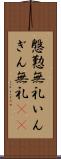 慇懃無礼いん
ぎん無礼